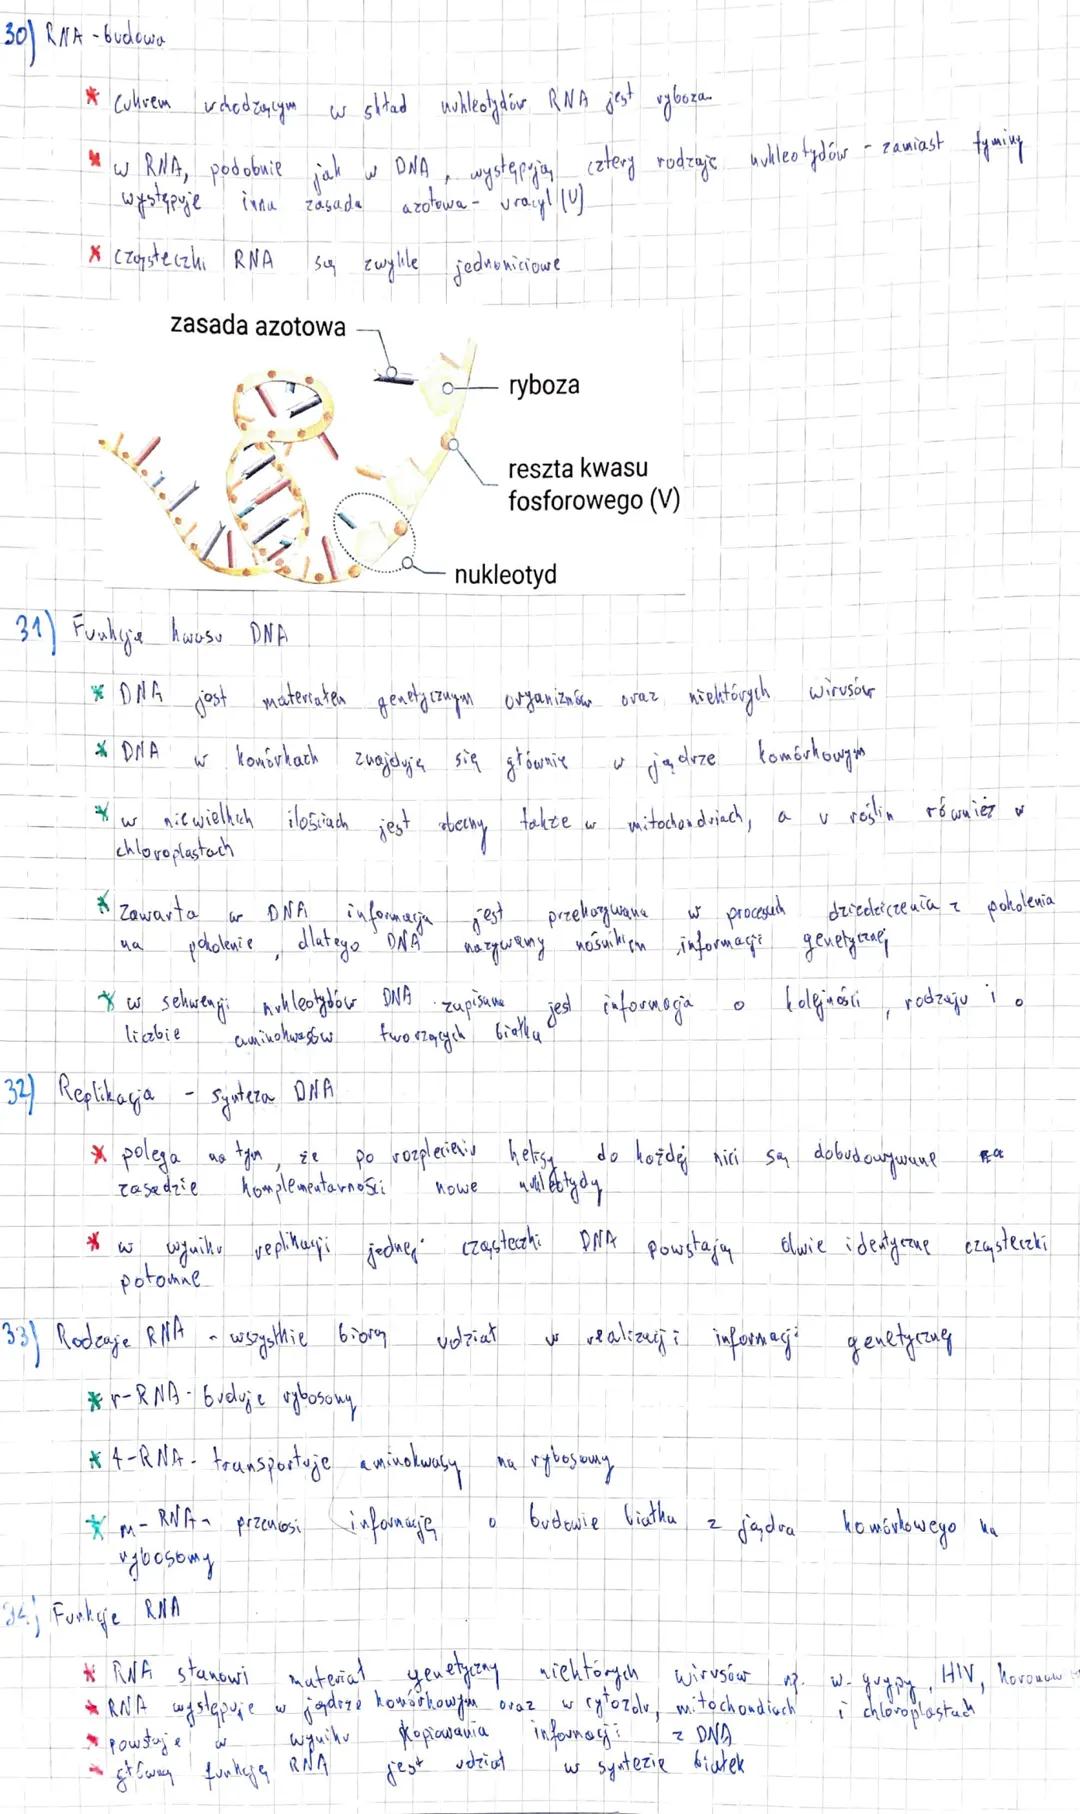 30) RNA - budowa
* Cukrem wchodzącym w skład nukleotydów RNA jest ryboza
* w RNA, podobnie jak w DNA, występują cztery rodzaje nukleotydów - zamiast tyminy
występuje inna zasada azotowa - uracyl (U)
* cząsteczki RNA są zwykle jednoniciowe
zasada azotowa
ryboza
reszta kwasu
fosforowego (V)
nukleotyd
31) Funkcje kwasu DNA
* DNA jest materiałem genetycznym organizmów oraz niektórych wirusów
* DNA w komórkach znajduje się głównie w jądrze komórkowym
* w niewielkich ilościach jest obecny także w mitochondriach, a u roślin również w
chloroplastach
* Zawarta w DNA informacja jest przekazywana w procesach dziedziczenia z pokolenia
na pokolenie, dlatego DNA nazywamy nośnikiem informacji genetycznej
* w sekwencji nukleotydów DNA zapisana jest informacja o kolejności, rodzaju i o
liczbie aminokwasów tworzących białka
32) Replikacja - synteza DNA
* polega na tym, że po rozpleceniu helisy do każdej nici są dobudowywane na
zasadzie komplementarności nowe nukleotydy
* w wyniku replikacji jednej cząsteczki DNA powstają dwie identyczne cząsteczki
potomne
33) Rodzaje RNA - wszystkie biorą udział w realizacji informacji genetycznej
* r-RNA - buduje rybosomy
* t-RNA - transportuje aminokwasy na rybosomy
* m-RNA - przenosi informację o budowie białka z jądra komórkowego na
rybosomy
34) Funkcje RNA
* RNA stanowi materiał genetyczny niektórych wirusów np. w. grypy, HIV,
* RNA występuje w jądrze komórkowym oraz w cytozolu, mitochondiach i chloroplastach
* powstaje w wyniku kopiowania informacji z DNA
* główną funkcją RNA jest udział w syntezie białek